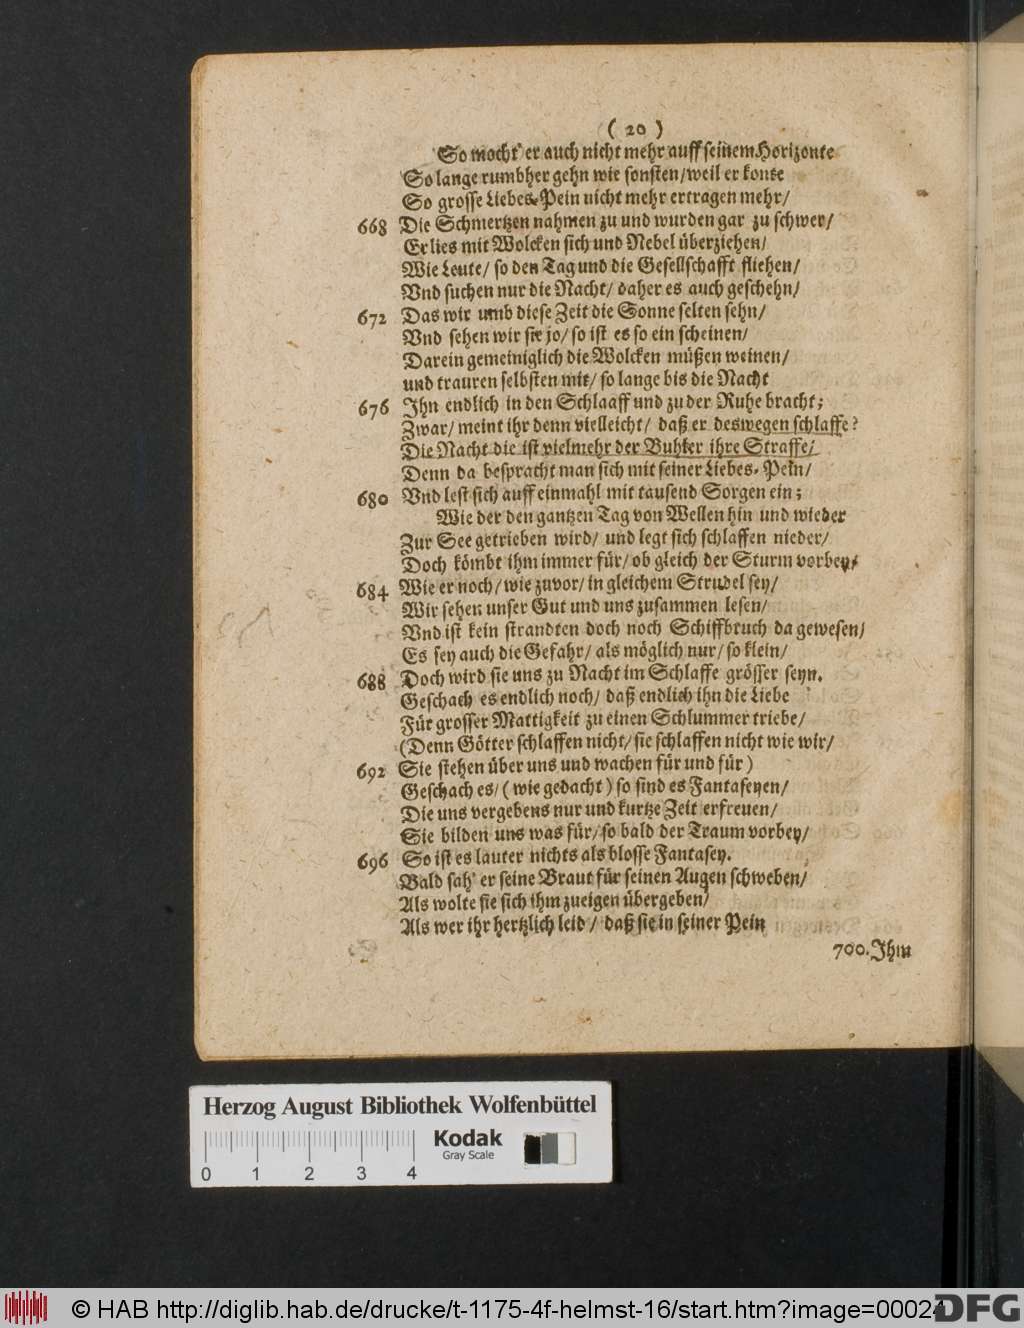 ( 20 )
So mocht' er auch nicht mehr auff seinem Horizonte
So lange rumbher gehn wie sonsten/ weil er konte
So grosse Liebes-Pein nicht mehr ertragen mehr/
668 Die Schmertzen nahmen zu und wurden gar zu schwer/
Er lies mit Wolcken sich und Nebel überziehen/
Wie Leute/ so den Tag und die Gesellschafft fliehen/
Vnd suchen nur die Nacht/ daher es auch geschehn/
672 Das wir umb diese Zeit die Sonne selten sehn/
Vnd sehen wir sie jo/ so ist es so ein scheinen/
Darein gemeiniglich die Wolcken müßen weinen/
und trauren selbsten mit/ so lange bis die Nacht
676 Ihn endlich in den Schlaaff und zu der Ruhe bracht;
Zwar/ meint ihr denn vielleicht/ daß er deswegen schlaffe?
Die Nacht die ist vielmehr der Buhler ihre Straffe/
Denn da bespracht man sich mit seiner Liebes-Pein/
680 Vnd lest sich auff einmahl mit tausend Sorgen ein;
Wie der den gantzen Tag von Wellen hin und wieder
Zur See getrieben wird/ und legt sich schlaffen nieder/
Doch kömbt ihm immer für/ ob gleich der Sturm vorbey/
684 Wie er noch/ wie zuvor/ in gleichem Strudel sey/
Wir sehen unser Gut und uns zusammen lesen/
Vnd ist kein strandten doch noch Schiffbruch da gewesen/
Es sey auch die Gefahr/ als möglich nur/ so klein/
688 Doch wird sie uns zu Nacht im Schlaffe grösser seyn.
Geschach es endlich noch/ daß endlich ihn die Liebe
Für grosser Mattigkeit zu einen Schlummer triebe/
(Denn Götter schlaffen nicht/ sie schlaffen nicht wie wir/
692 Sie stehen über uns und wachen für und für)
Geschach es/ (wie gedacht) so sind es Fantaseyen/
Die uns vergebens nur und kurtze Zeit erfreuen/
Sie bilden uns was für/ so bald der Traum vorbey/
696 So ist es lauter nichts als blosse Fantasey.
Bald sah' er seine Braut für seinen Augen schweben/
Als wolte sie sich ihm zueigen übergeben/
Als wer ihr hertzlich leid/ daß sie in seiner Pein
700. Ihm
Herzog August Bibliothek Wolfenbüttel
Kodak
Gray Scale
0 1 2 3 4
© HAB http://diglib.hab.de/drucke/t-1175-4f-helmst-16/start.htm?image=00024
DFG